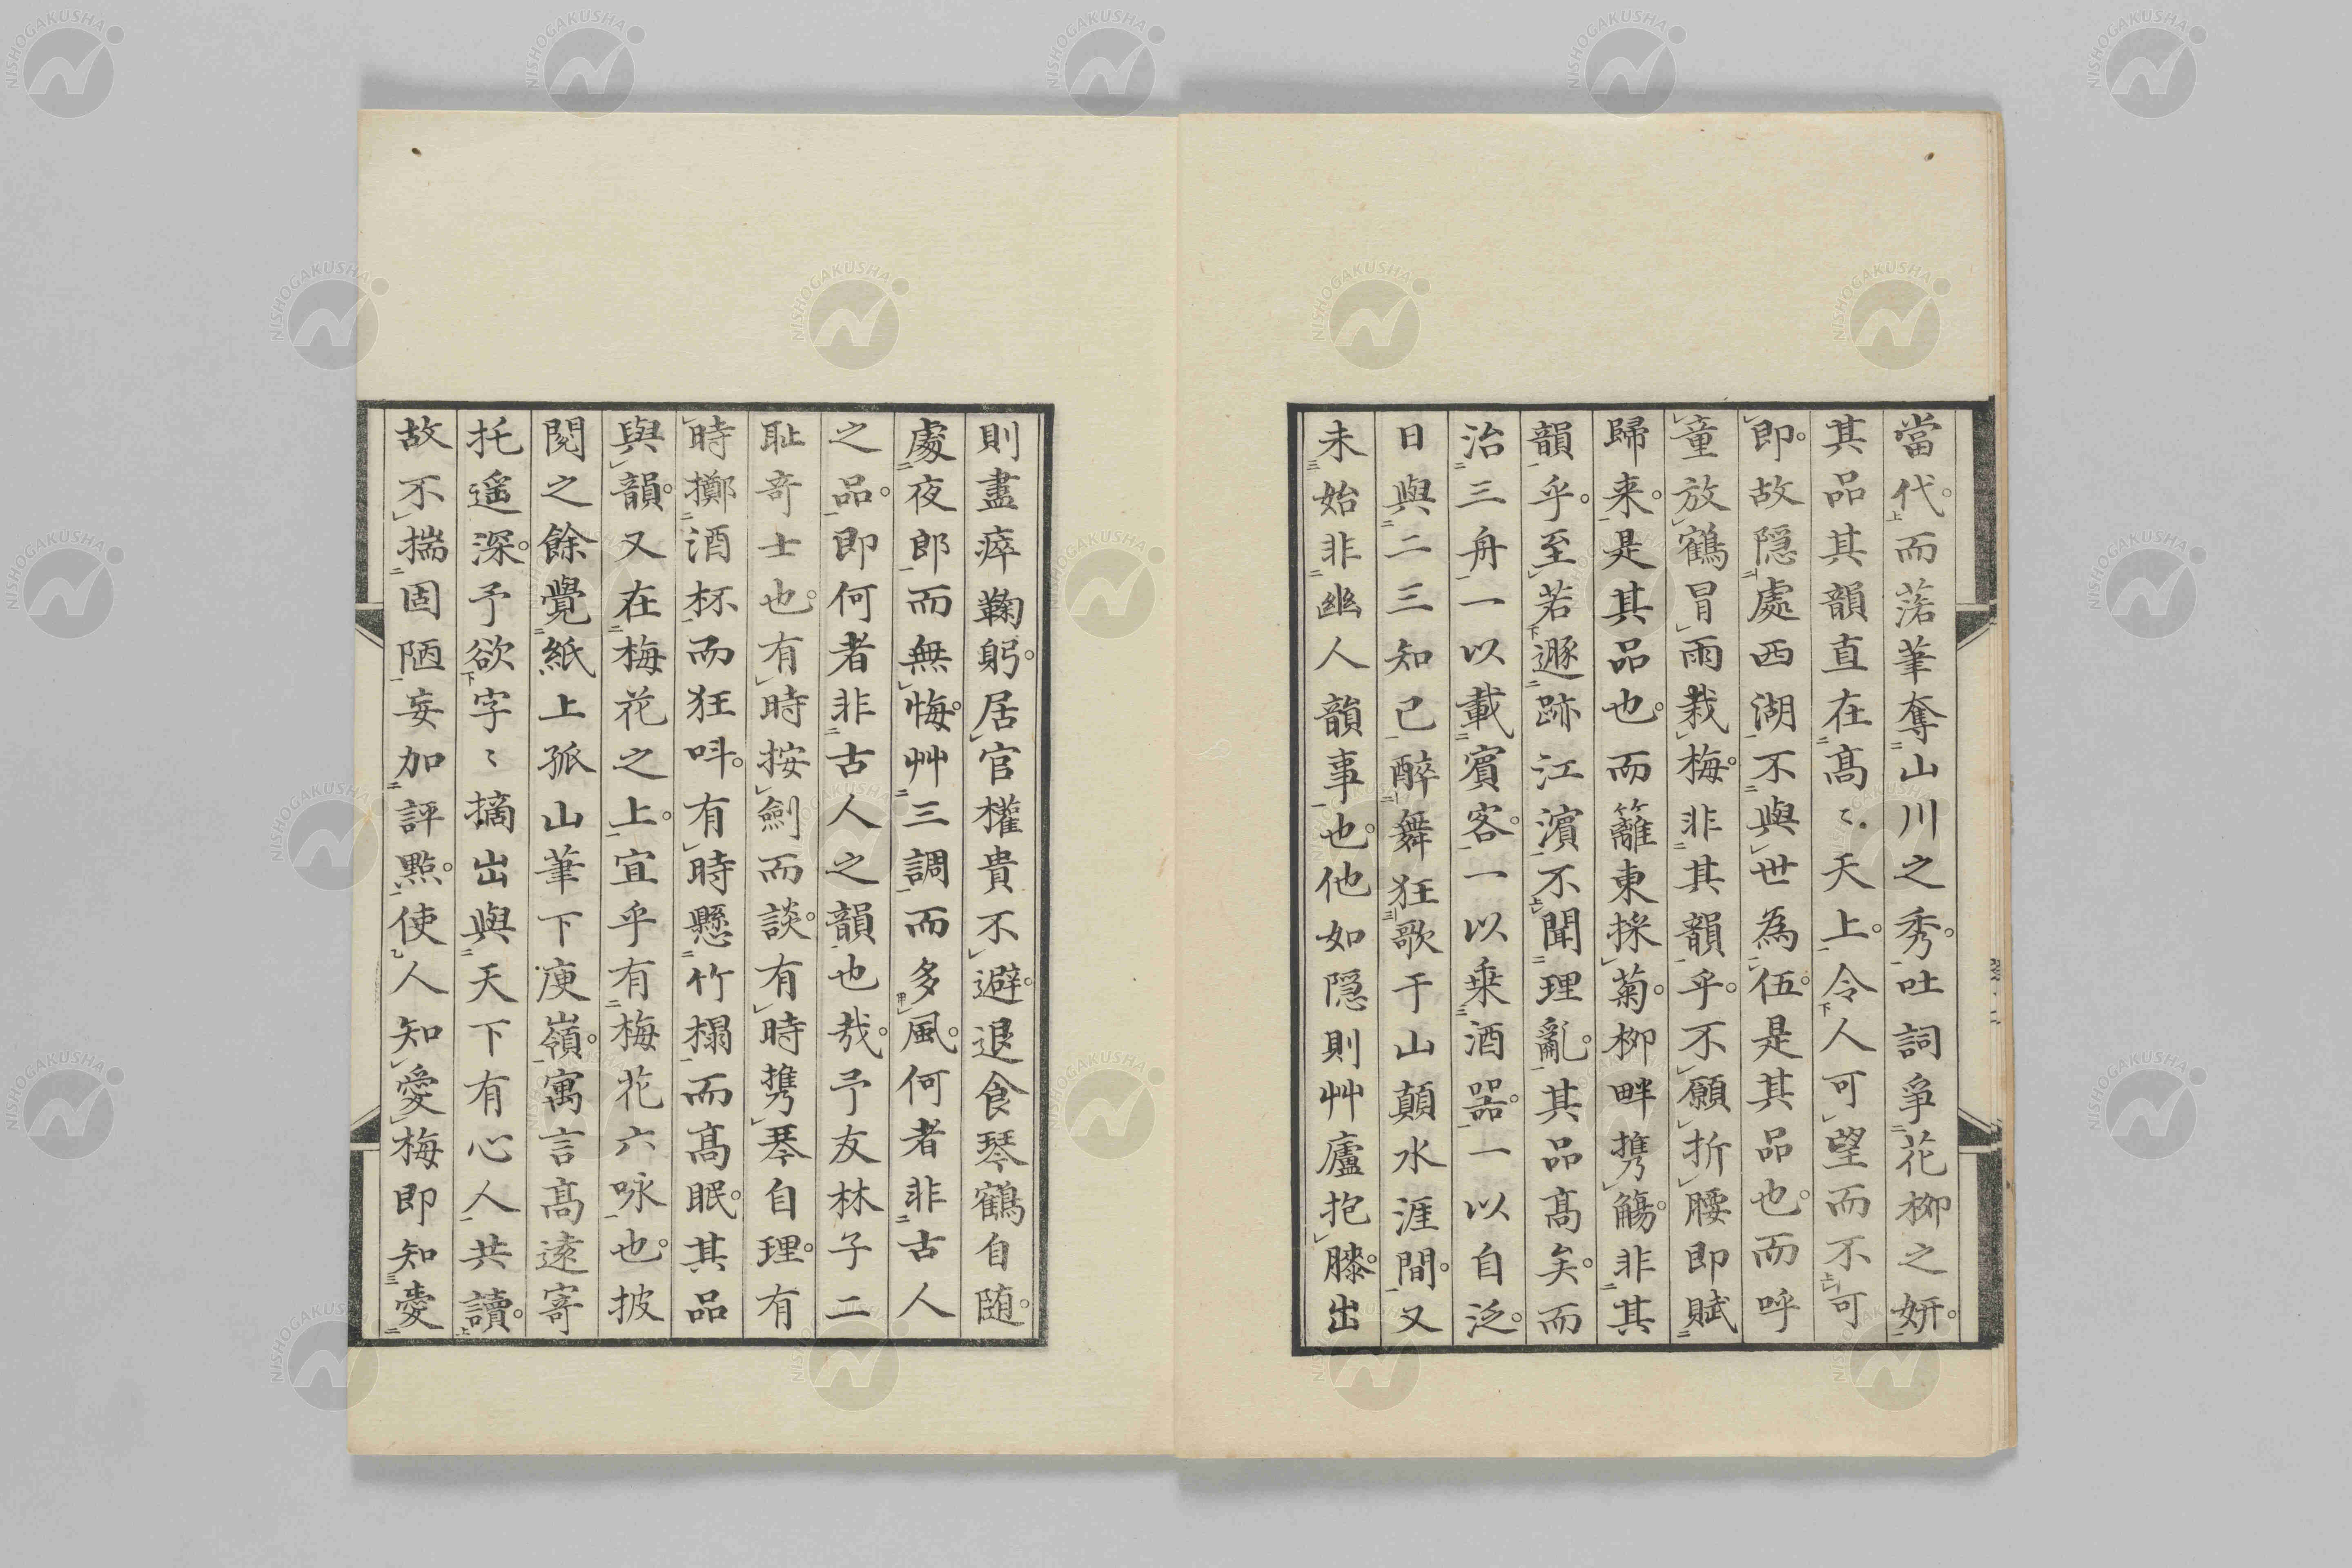 當代。而落筆奪山川之秀。吐詞爭花柳之妍。
其品其韻直在高〻天上。令人可望而不可
即。故隠處西湖不與世為伍。是其品也。而呼
童放鶴冒雨栽梅。非其韻乎。不願折腰即賦
歸来。是其品也。而籬東採菊。柳畔携觴。非其
韻乎。至若遯跡江濵不聞理亂。其品高矣。而
治三舟一以載賓客。一以乗酒器。一以自泛。
日與二三知己醉舞狂歌于山顛水涯間。又
未始非幽人韻事也。他如隠則艸廬抱膝。出
則盡瘁鞠躬。居官權貴不避。退食琴鶴自随。
處夜郎而無悔。艸三調而多風。何者非古人
之品。即何者非古人之韻也哉。予友林子二
耻竒士也。有時按劍而談。有時携琴自理。有
時擲酒杯而狂呌。有時懸竹榻而高眠。其品
與韻。又在梅花之上。宜乎有梅花六咏也。披
閱之餘覺紙上孤山筆下庾嶺。寓言高遠寄
托遥深。予欲字〻摘出與天下有心人共讀。
故不揣固陋妄加評點。使人知愛梅即知愛
NISHOGAKUSHA